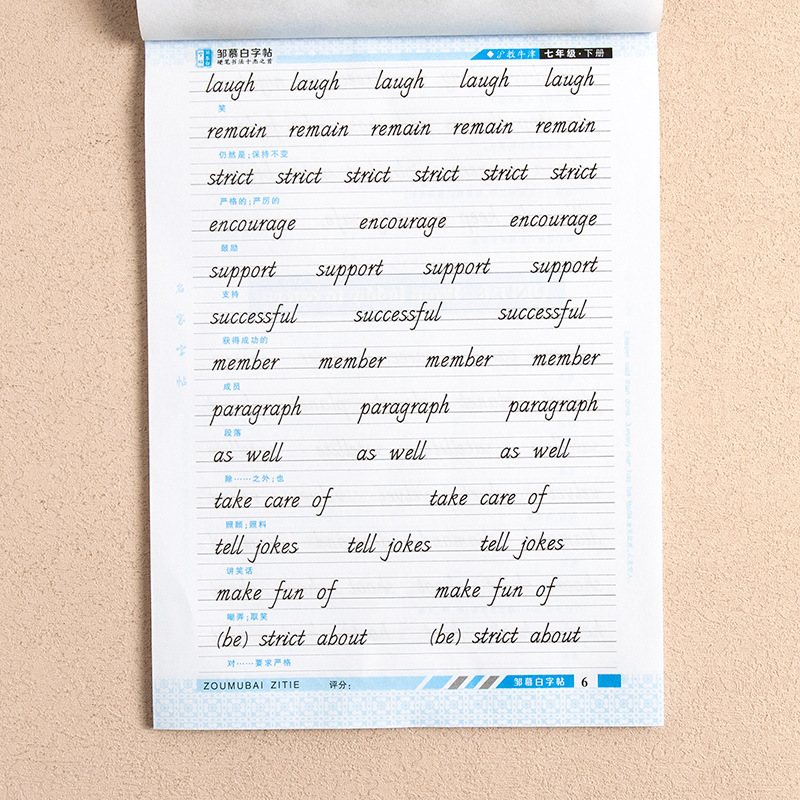 邹慕白字帖
硬笔书法十杰之首
沪教牛津 七年级·下册
laugh laugh laugh laugh laugh
笑
remain remain remain remain remain
仍然是;保持不变
strict strict strict strict strict strict
严格的;严厉的
encourage encourage encourage
鼓励
support support support support
支持
successful successful successful
获得成功的
member member member member
成员
paragraph paragraph paragraph
段落
as well as well as well
除……之外;也
take care of take care of
照顾;照料
tell jokes tell jokes tell jokes
讲笑话
make fun of make fun of
嘲弄;取笑
(be) strict about (be) strict about
对……要求严格
名家字帖
ZOUMUBAI ZITIE 评分: 邹慕白字帖 6